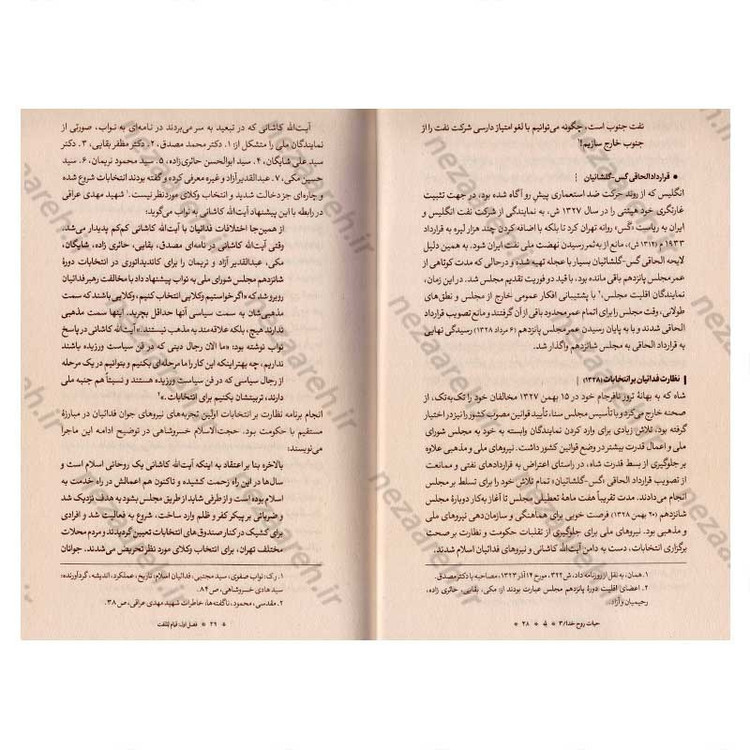 نفت جنوب است، چگونه می‌توانیم با لغو امتیاز دارسی شرکت نفت را از
جنوب خارج سازیم؟
• قرارداد الحاقی گس-گلشائیان
انگلیس که از روند حرکت ضد استعماری پیش رو آگاه شده بود، در جهت تثبیت
غارتگری خود هیئتی را در سال ۱۳۲۷ ش، به نمایندگی از شرکت نفت انگلیس و
ایران به ریاست «گس» روانه تهران کرد تا بلکه با اضافه کردن چند هزار لیره به قرارداد
۱۹۳۳ م (۱۳۱۲ ش)، مانع از به‌ثمر رسیدن نهضت ملی نفت ایران شود. به همین دلیل
لایحه الحاقی گس-گلشائیان بسیار با عجله تهیه شده و درحالی که مدت کوتاهی از
عمر مجلس پانزدهم باقی مانده بود، با قید دو فوریت تقدیم مجلس شد. در این زمان،
نمایندگان اقلیت مجلس،۱ با پشتیبانی افکار عمومی خارج از مجلس و نطق‌های
طولانی، وقت مجلس را برای اتمام عمر محدود باقی از آن گرفتند و مانع تصویب قرارداد
الحاقی شدند و با به پایان رسیدن عمر مجلس پانزدهم (۶ مرداد ۱۳۲۸) رسیدگی نهایی
به قرارداد الحاقی به مجلس شانزدهم واگذار شد.
نظارت فدائیان بر انتخابات (۱۳۲۸)
شاه که به بهانهٔ ترور نافرجام خود در ۱۵ بهمن ۱۳۲۷ مخالفان خود را تک‌به‌تک، از
صحنه خارج می‌کرد و با تأسیس مجلس سنا، تأیید قوانین مصوب کشور را نیز در اختیار
گرفته بود، تلاش زیادی برای وارد کردن نمایندگان وابسته به خود به مجلس شورای
ملی و اعمال قدرت بیشتر در وضع قوانین کشور داشت. نیروهای ملی و مذهبی علاوه
بر جلوگیری از بسط قدرت شاه، در راستای اعتراض به قراردادهای نفتی و ممانعت
از تصویب قرارداد الحاقی «گس-گلشائیان» تمام تلاش خود را برای تسلط بر مجلس
انجام می‌دادند. مدت تقریباً هفت ماههٔ تعطیلی مجلس تا آغاز به‌کار دوبارهٔ مجلس
شانزدهم (۲۰ بهمن ۱۳۲۸) فرصت خوبی برای هماهنگی و سازمان‌دهی نیروهای ملی
و مذهبی بود. نیروهای ملی برای جلوگیری از تقلبات حکومت و نظارت بر صحت
برگزاری انتخابات، دست به دامن آیت‌الله کاشانی و نیروهای فدائیان اسلام شدند.
۱. همان، به نقل از روزنامه داد، ش۳۲۲، مورخ ۱۴ آذر ۱۳۲۳، مصاحبه با دکتر مصدق.
۲. اعضای اقلیت دورهٔ پانزدهم مجلس عبارت بودند از: مکی، بقایی، حائری زاده،
رحیمیان و آزاد.
حیات روح خدا/۳ * ۲۸ *
آیت‌الله کاشانی که در تبعید به سر می‌بردند در نامه‌ای به نواب، صورتی از
نمایندگان ملی را متشکل از: ۱. دکتر محمد مصدق، ۲. دکتر مظفر بقایی، ۳. دکتر
سید علی شایگان، ۴. سید ابوالحسن حائری‌زاده، ۵. سید محمود نریمان، ۶. سید
حسین مکی، ۷. عبدالقدیر آزاد و غیره معرفی کرده و گفته بودند انتخابات شروع شده
و چاره‌ای جز دخالت شدید و انتخاب وکلای مورد نظر نیست.۱ شهید مهدی عراقی
در رابطه با این پیشنهاد آیت‌الله کاشانی به نواب می‌گوید:
از همین‌جا اختلافات فدائیان با آیت‌الله کاشانی کم‌کم پدیدار می‌شد.
وقتی آیت‌الله کاشانی در نامه‌ای مصدق، بقایی، حائری زاده، شایگان،
مکی، عبدالقدیر آزاد و نریمان را برای کاندیداتوری در انتخابات دورهٔ
شانزدهم مجلس شورای ملی به نواب پیشنهاد داد با مخالفت رهبر فدائیان
روبرو شد که «اگر خواستیم وکلایی انتخاب کنیم، وکلایی باشند که سمت
مذهبی‌شان به سمت سیاسی آنها حداقل بچربد. اینها سمت مذهبی
ندارند هیچ، بلکه علاقه‌مند به مذهب نیستند.» آیت‌الله کاشانی در پاسخ
نواب نوشته بود: «ما الان رجال دینی که در فن سیاست ورزیده باشند
نداریم، چه بهتر اینکه این کار را ما مرحله‌ای بکنیم و بتوانیم در یک مرحله
از رجال سیاسی که در فن سیاست ورزیده هستند و نسبتاً هم جنبه ملی
دارند، تربیتشان بکنیم برای انتخابات.»۲
انجام برنامه نظارت بر انتخابات اولین تجربه‌های نیروهای جوان فدائیان در مبارزهٔ
مستقیم با حکومت بود. حجت‌الاسلام خسروشاهی در توضیح ادامه این ماجرا
می‌نویسند:
بالاخره بنا بر اعتقاد به اینکه آیت‌الله کاشانی یک روحانی اسلام است و
سال‌ها در این راه زحمت کشیده و تاکنون هم اعمالش در راه خدمت به
اسلام بوده است و از طرفی شاید از طریق مجلس بشود به هدف نزدیک شد
و ضرباتی بر پیکر کفر و ظلم وارد ساخت، شروع به فعالیت شد و افرادی
برای کشیک در کنار صندوق‌های انتخابات تعیین گردیدند و مردم محلات
مختلف تهران، برای انتخاب وکلای مورد نظر تحریض می‌شدند. جوانان
۱. رک: نواب صفوی، سید مجتبی، فدائیان اسلام، تاریخ، عملکرد، اندیشه، گردآورنده:
سید هادی خسروشاهی، ص ۸۴.
۲. مقدسی، محمود، ناگفته‌ها، خاطرات شهید مهدی عراقی، ص ۳۸.
فصل اول: قیام لله‌است * ۲۹ *
nezaareh.ir